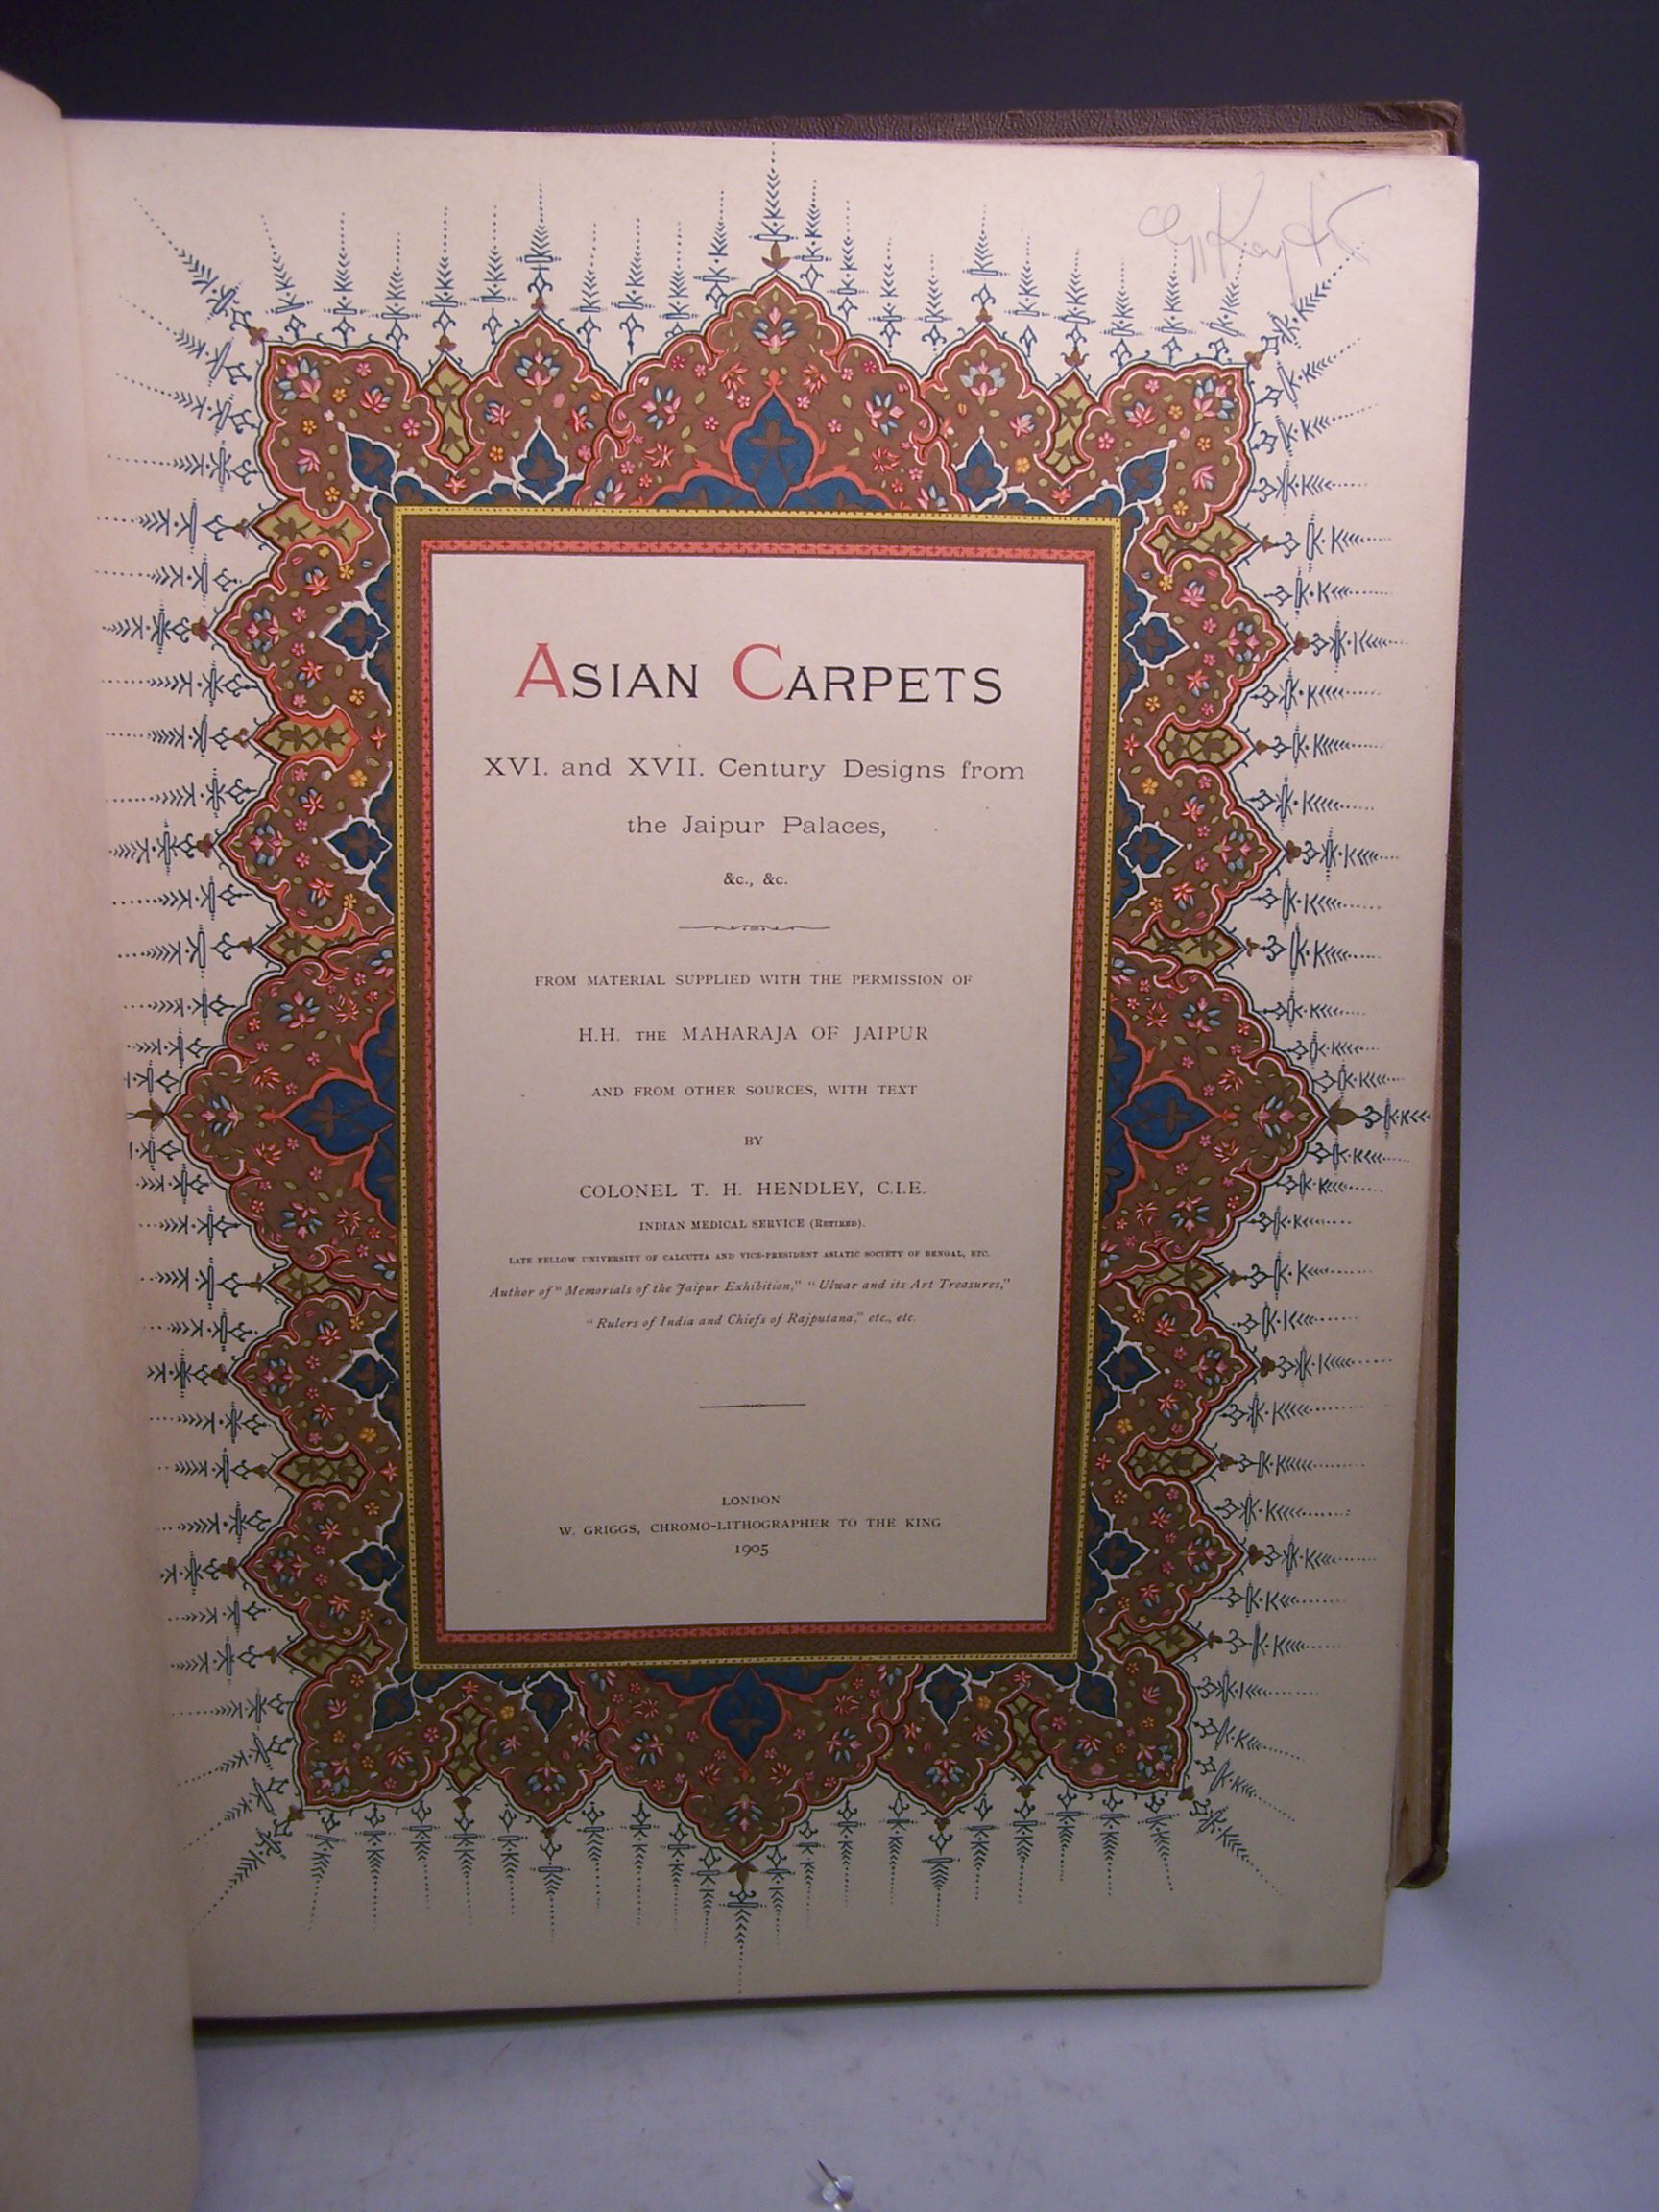 ASIAN CARPETS
XVI. and XVII. Century Designs from
the Jaipur Palaces,
&c., &c.
FROM MATERIAL SUPPLIED WITH THE PERMISSION OF
H.H. THE MAHARAJA OF JAIPUR
AND FROM OTHER SOURCES, WITH TEXT
BY
COLONEL T. H. HENDLEY, C.I.E.
INDIAN MEDICAL SERVICE (RETIRED).
LATE FELLOW UNIVERSITY OF CALCUTTA AND VICE-PRESIDENT ASIATIC SOCIETY OF BENGAL, ETC.
Author of "Memorials of the Jaipur Exhibition," "Ulwar and its Art Treasures,"
"Rulers of India and Chiefs of Rajputana," etc., etc.
LONDON
W. GRIGGS, CHROMO-LITHOGRAPHER TO THE KING
1905